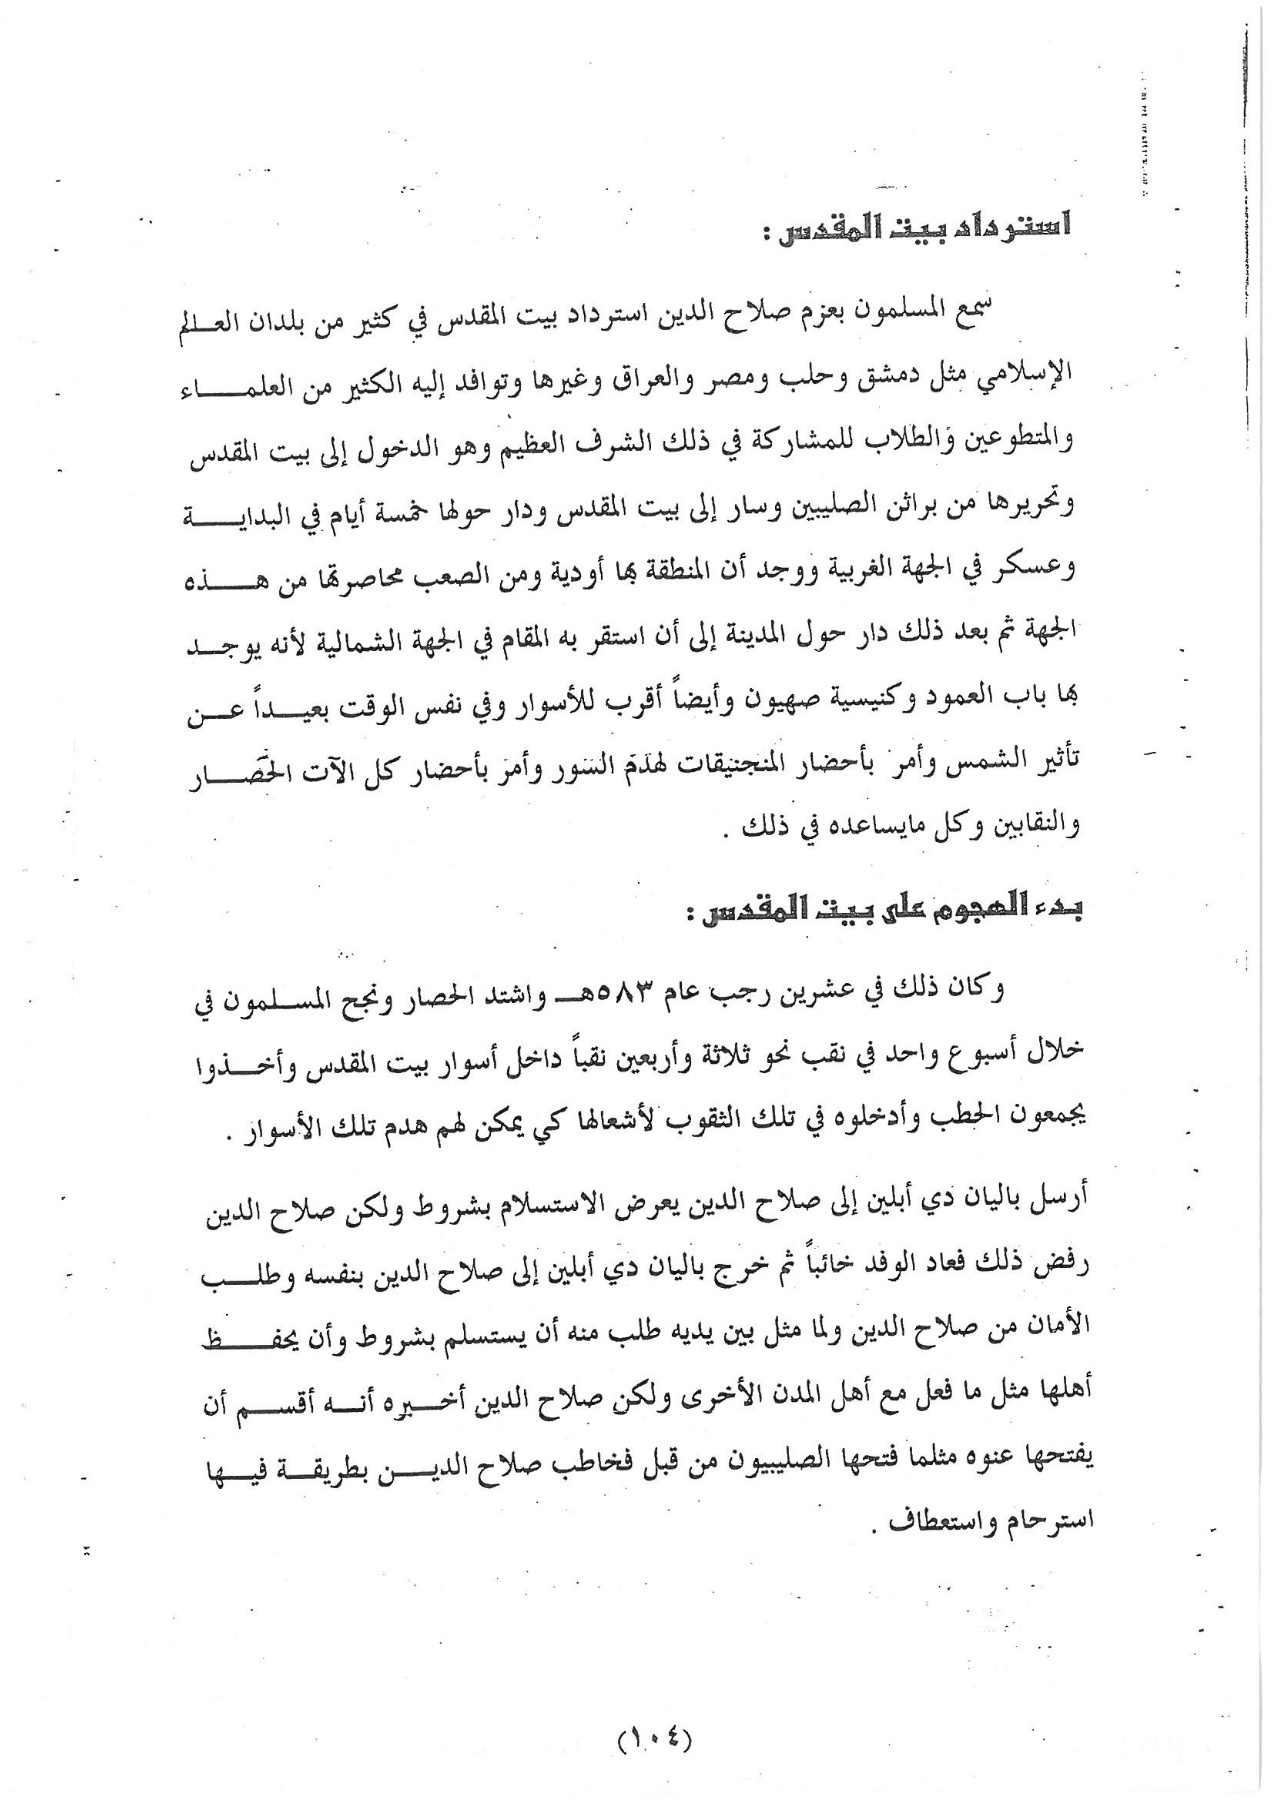 استرداد بيت المقدس :
سمع المسلمون بعزم صلاح الدين استرداد بيت المقدس في كثير من بلدان العالم
الإسلامي مثل دمشق وحلب ومصر والعراق وغيرها وتوافد إليه الكثير من العلماء
والمتطوعين والطلاب للمشاركة في ذلك الشرف العظيم وهو الدخول إلى بيت المقدس
وتحريرها من براثن الصليبين وسار إلى بيت المقدس ودار حولها خمسة أيام في البداية
وعسكر في الجهة الغربية ووجد أن المنطقة بها أودية ومن الصعب محاصرتها من هذه
الجهة ثم بعد ذلك دار حول المدينة إلى أن استقر به المقام في الجهة الشمالية لأنه يوجد
بها باب العمود وكنيسية صهيون وأيضاً أقرب للأسوار وفي نفس الوقت بعيداً عن
تأثير الشمس وأمر بأحضار المنجنيقات لهدم السور وأمر بأحضار كل الآت الحصار
والنقابين وكل مايساعده في ذلك .
بدء الهجوم على بيت المقدس :
وكان ذلك في عشرين رجب عام ٥٨٣هـ واشتد الحصار ونجح المسلمون في
خلال أسبوع واحد في نقب نحو ثلاثة وأربعين نقباً داخل أسوار بيت المقدس وأخذوا
يجمعون الحطب وأدخلوه في تلك الثقوب لأشعالها كي يمكن لهم هدم تلك الأسوار .
أرسل باليان دي أبلين إلى صلاح الدين يعرض الاستسلام بشروط ولكن صلاح الدين
رفض ذلك فعاد الوفد خائباً ثم خرج باليان دي أبلين إلى صلاح الدين بنفسه وطلب
الأمان من صلاح الدين ولما مثل بين يديه طلب منه أن يستسلم بشروط وأن يحفظ
أهلها مثل ما فعل مع أهل المدن الأخرى ولكن صلاح الدين أخبره أنه أقسم أن
يفتحها عنوه مثلما فتحها الصليبيون من قبل فخاطب صلاح الدين بطريقة فيها
استرحام واستعطاف .
(١٠٤)